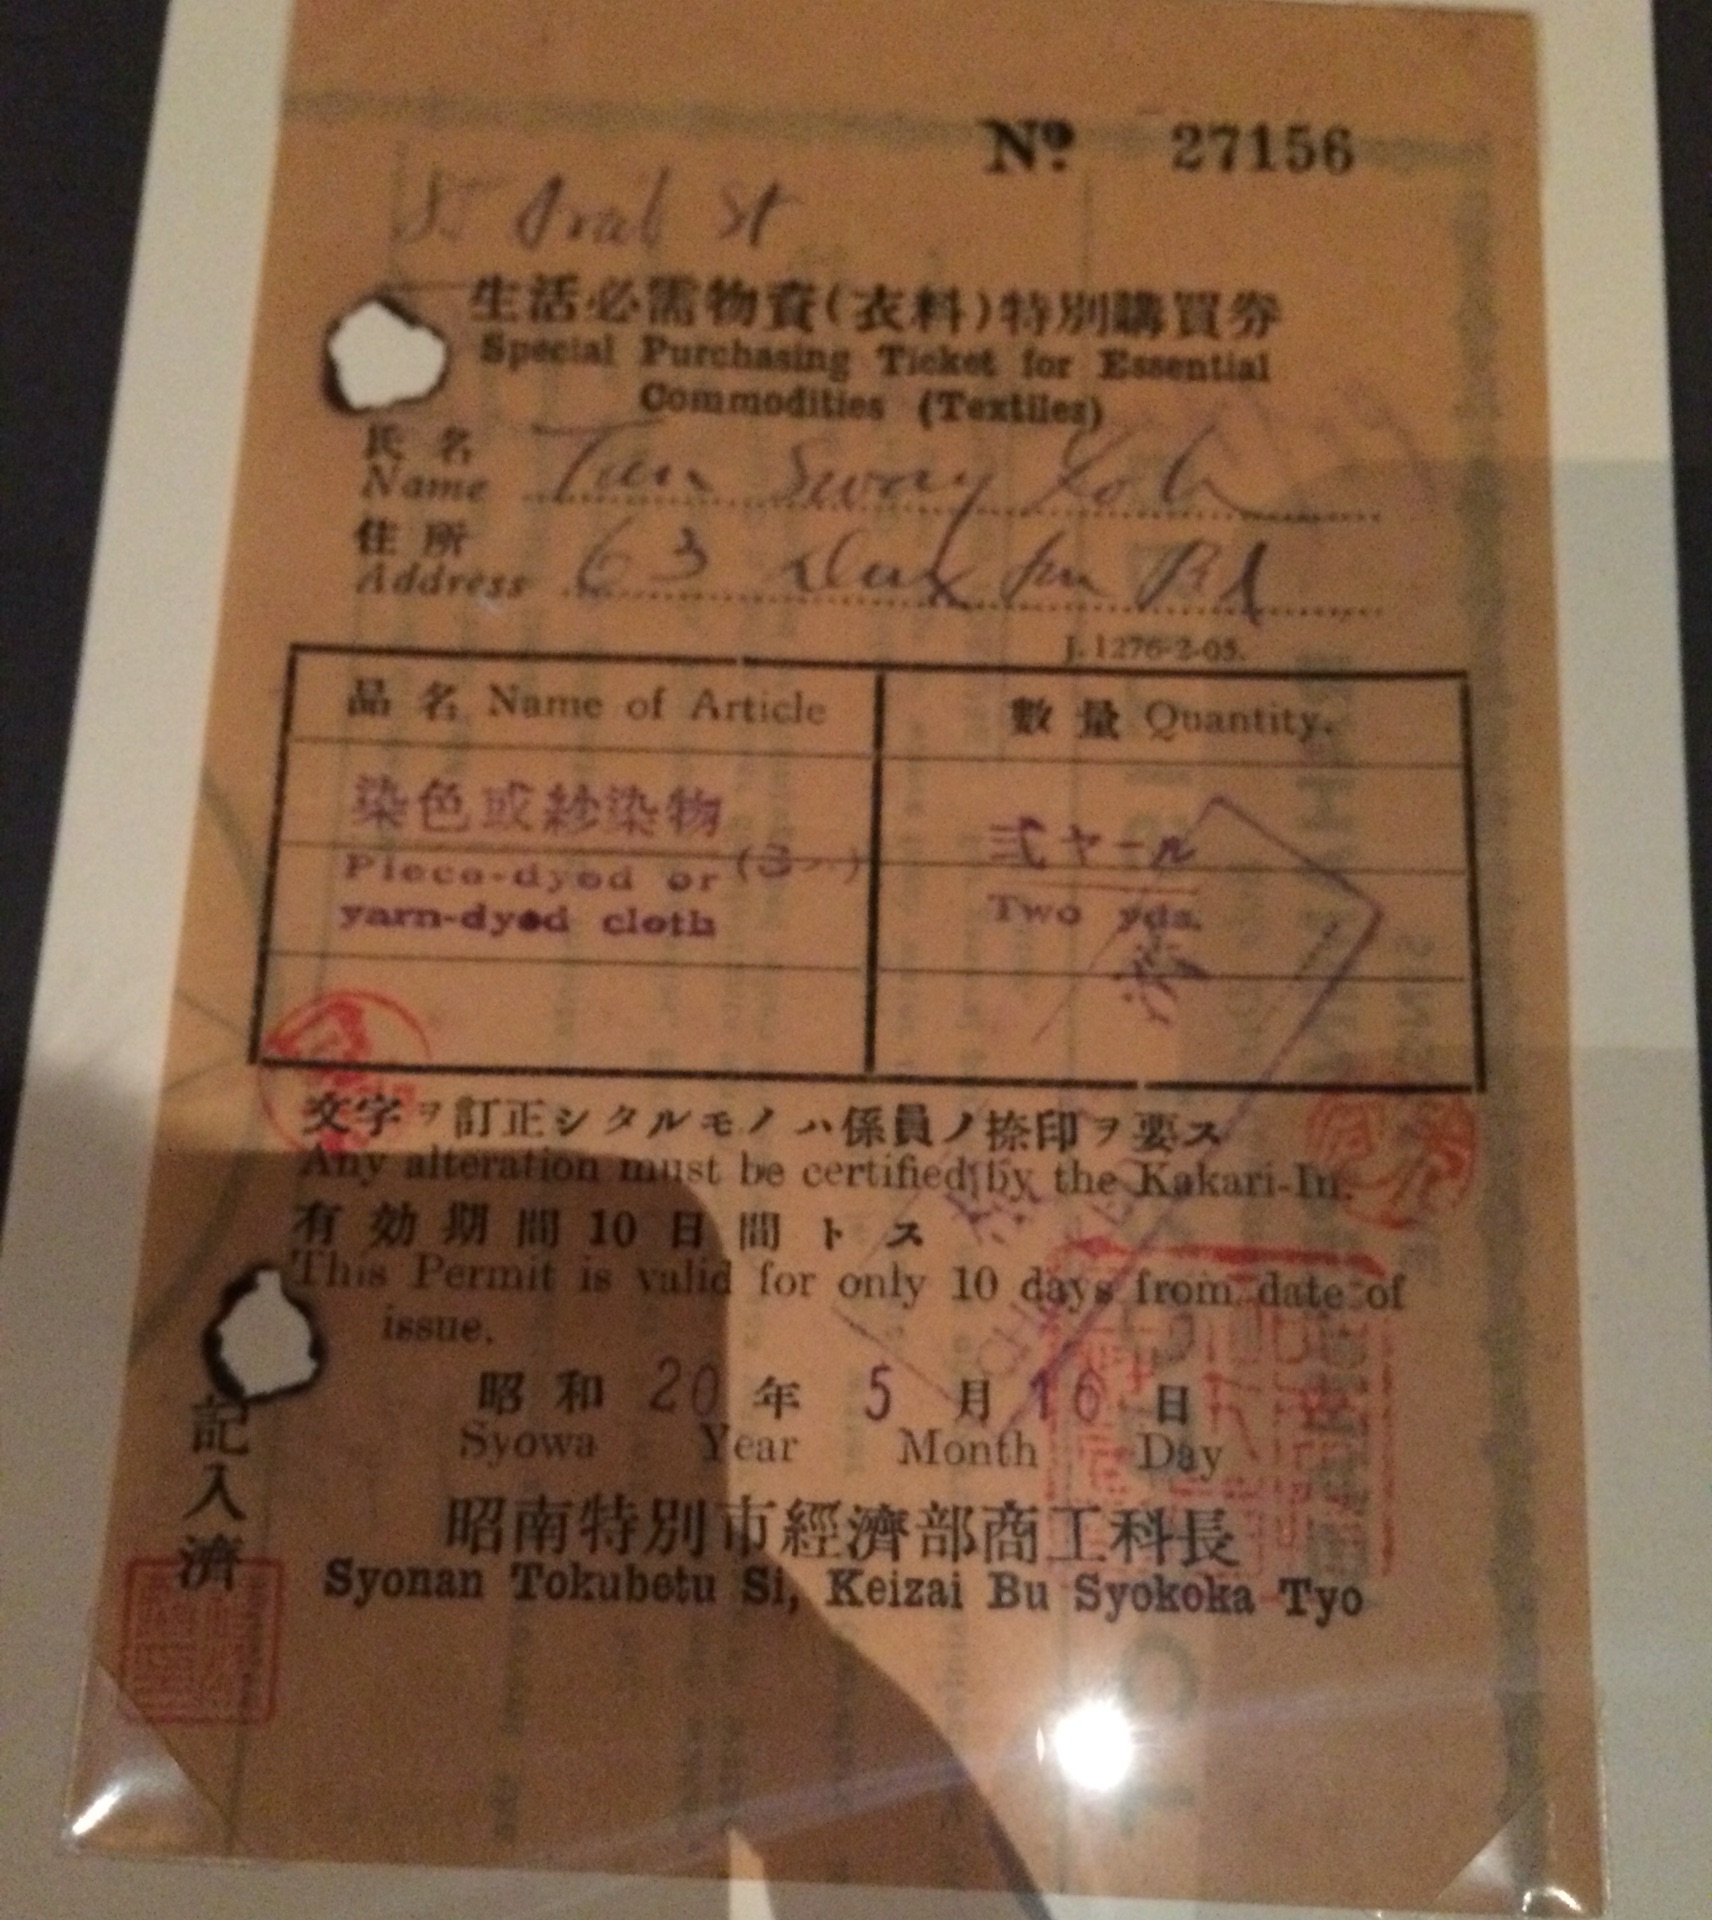 Nº. 27156
Arab St
生活必需物資(衣料)特別購買券
Special Purchasing Ticket for Essential
Commodities (Textiles)
氏名
Name Tan Swang Koh
住所
Address 63 Rd
J. 1276-2-05.
品名 Name of Article
數量 Quantity.
染色或紗染物
Piece-dyed or
yarn-dyed cloth
弍ヤール
Two yds.
文字ヲ訂正シタルモノハ係員ノ捺印ヲ要ス
Any alteration must be certified by the Kakari-In.
有効期間10日間トス
This Permit is valid for only 10 days from date of
issue.
昭和 20 年 5 月 16 日
Syowa Year Month Day
記入濟
昭南特別市經濟部商工科長
Syonan Tokubetu Si, Keizai Bu Syokoka Tyo